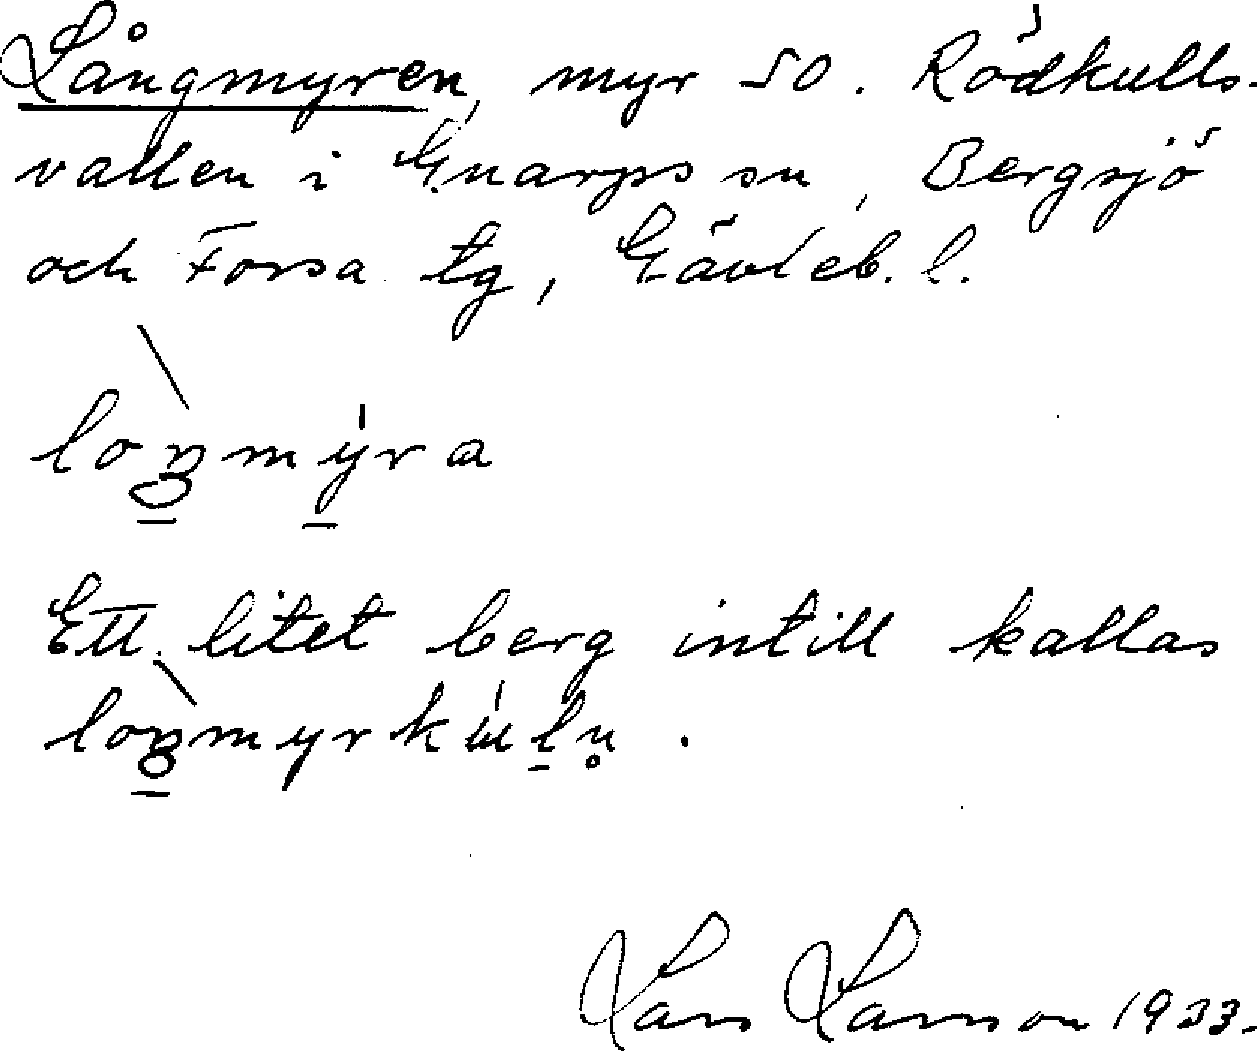 Långmyren, myr SO. Rödkulls-
vallen i Gnarps sn, Bergsjö
och Forsa tg, Gävleb. l.
loŋmýra
Ett litet berg intill kallas
loŋmyrkúlu̥.
Lars Larsson 1933.